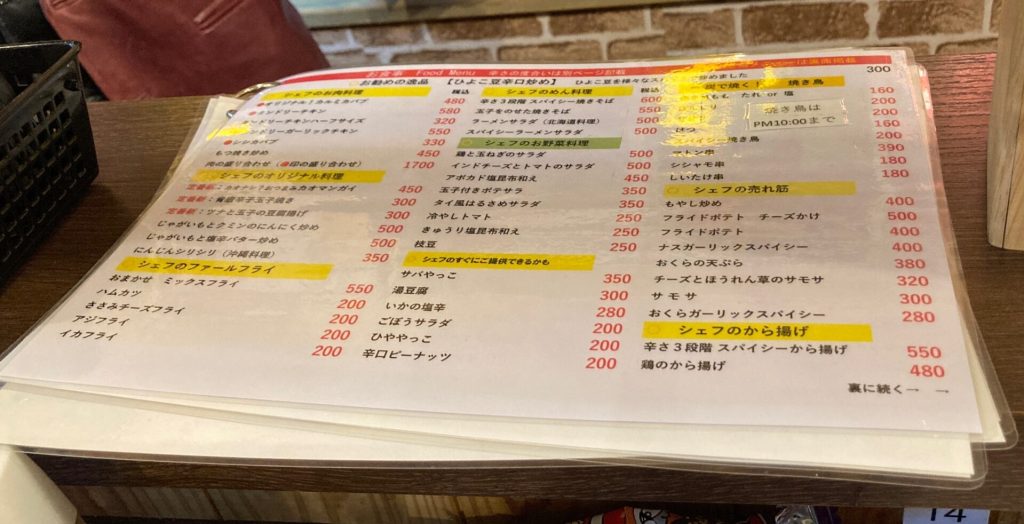 お食事 Food Menu 辛さの度合いは別ページ記載
お勧めの逸品 【ひよこ豆辛口炒め】 ひよこ豆を様々なス
炒めました
300
シェフのお肉料理
税込
オリジナル！カルミカバブ 480
タンドリーチキン 550
タンドリーチキンハーフサイズ 320
タンドリーガーリックチキン 550
シシカバブ 330
もつ焼き炒め 450
肉の盛り合わせ（●印の盛り合わせ） 1700
シェフのオリジナル料理
カオマンガイ 450
定番都：青唐辛子玉子焼き 300
定番都：ツナと玉子の豆腐揚げ 300
じゃがいもとクミンのにんにく炒め 500
じゃがいもと塩辛バター炒め 500
にんじんシリシリ（沖縄料理） 350
シェフのファールフライ
おまかせ ミックスフライ 550
ハムカツ 200
ささみチーズフライ 200
アジフライ 200
イカフライ 200
シェフのめん料理
税込
辛さ3段階 スパイシー焼きそば 600
玉子をのせた焼きそば 550
ラーメンサラダ（北海道料理） 500
スパイシーラーメンサラダ 500
シェフのお野菜料理
鶏と玉ねぎのサラダ 500
インドチーズとトマトのサラダ 500
アボカド塩昆布和え 450
玉子付きポテサラ 350
タイ風はるさめサラダ 350
冷やしトマト 250
きゅうり塩昆布和え 250
枝豆 250
シェフのすぐにご提供できるかも
サバやっこ 350
湯豆腐 300
いかの塩辛 280
ごぼうサラダ 200
ひややっこ 200
辛口ピーナッツ 200
炭で焼く
焼き鳥
もも たれ or 塩 160
200
200
はつ 160
スパイシー焼き鳥 200
マトン串 390
シシャモ串 180
しいたけ串 180
焼き鳥は
PM10:00まで
シェフの売れ筋
もやし炒め 400
フライドポテト チーズかけ 500
フライドポテト 400
ナスガーリックスパイシー 400
おくらの天ぷら 380
チーズとほうれん草のサモサ 320
サモサ 300
おくらガーリックスパイシー 280
シェフのから揚げ
辛さ3段階 スパイシーから揚げ 550
鶏のから揚げ 480
裏に続く→ →
14